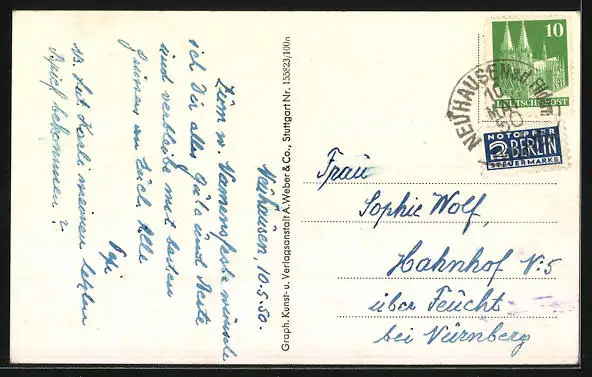 Neuhausen, 10.5.50.
Zum w. Namensfeste wünsche
ich Dir alles Gute und Beste
und verbleibe mit besten
Grüssen an Euch Alle
Pepi
NB. hat Karli meinen letzten
Brief bekommen?
Graph. Kunst- u. Verlagsanstalt A. Weber & Co., Stuttgart Nr. 155823/100n
10
DEUTSCHE POST
NEUHAUSEN a.d. Fildern
10 MAI 50
NOTOPFER
2 BERLIN
STEUERMARKE
Frau
Sophie Wolf,
Hahnhof N: 5
über Feucht
bei Nürnberg